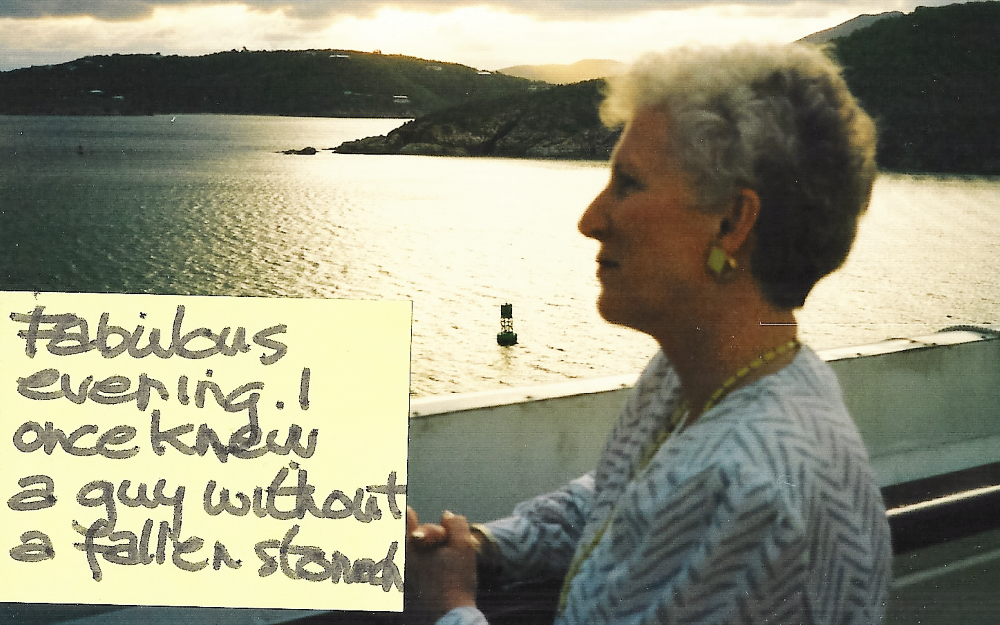 Fabulous
evening. I
once knew
a guy without
a fallen stomach